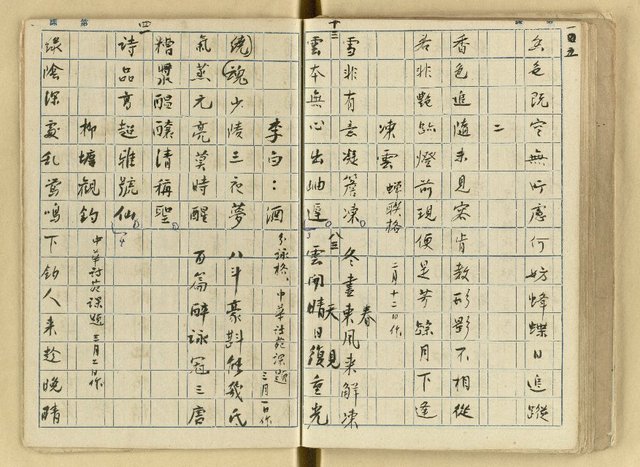 色既空無所慮何妨蜂蝶日追蹤
二
香色追隨未見容肯教形影不相從
若非艷 燈前現便是芳 月下逢
凍雲 蟬聯格 二月十二日作
春
雪非有意凝簷凍 冬盡東風來解凍
十三 八三 天 見
雲本無心出岫遲 雲開晴日復重光
李白:酒 分詠格、中華詩苑課題 三月一日作
繞魂少陵三夜夢 八斗豪斟能幾
氣蒸元亮莫時醒 百篇醉詠冠三唐
糟漿醞釀清稱聖
四
詩品高超雅號仙
柳塘觀釣 中華詩苑課題 三月二日作
第
綠陰深處亂鶯鳴下釣人來趁晚晴